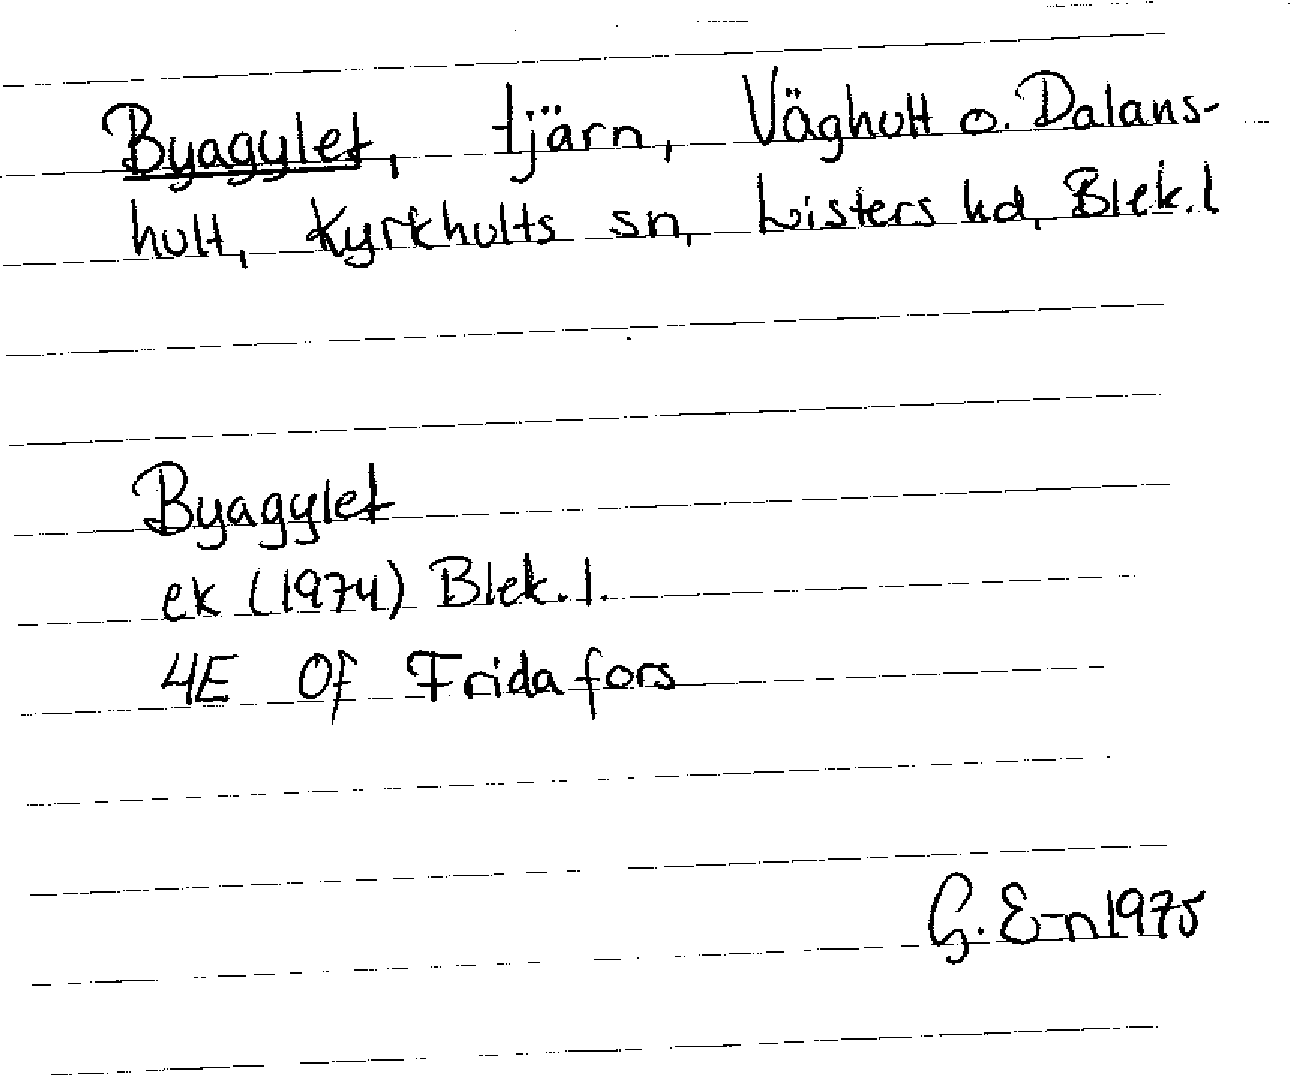 Byagylet, tjärn, Väghult o. Dalans-
hult, Kyrkhults sn, Listers hd, Blek. l
Byagylet
ek (1974) Blek. l.
4E 0f Fridafors
G. E-n 1975